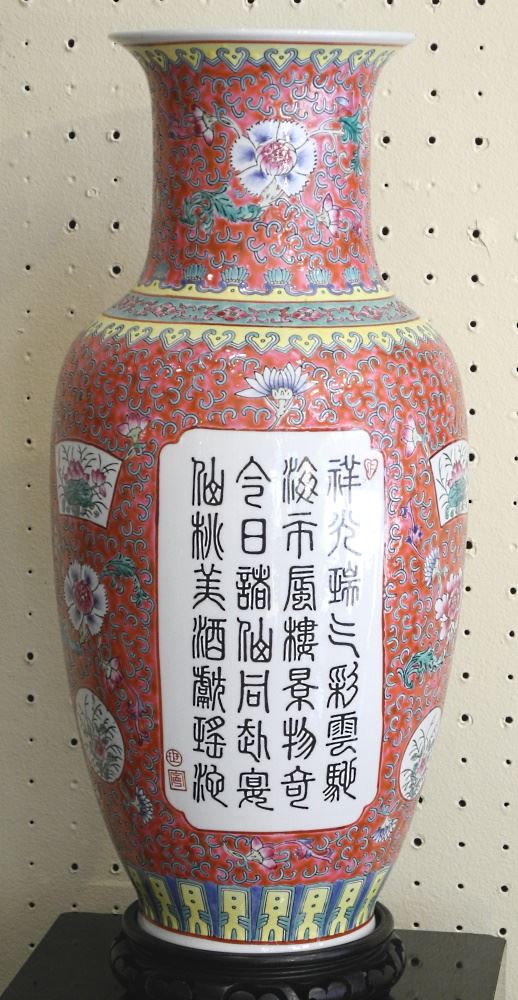 祥光瑞气彩雲馳
海市蜃樓景物奇
今日諸仙同赴宴
仙桃美酒獻瑤池